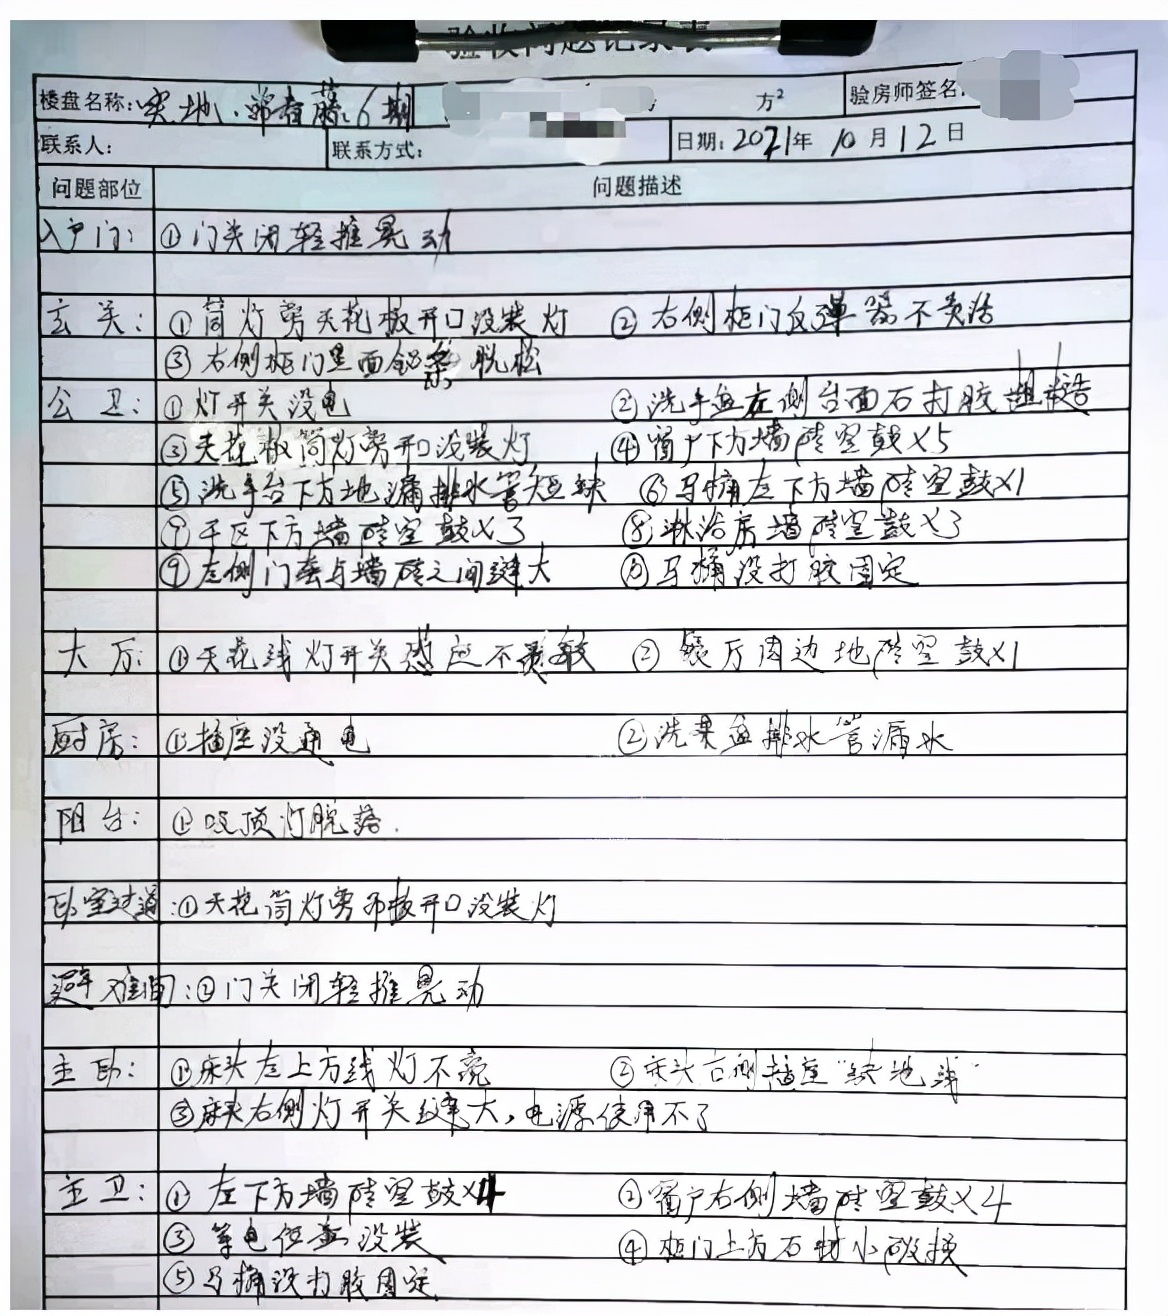 验收问题记录表
楼盘名称: 实地·常春藤6期 方² 验房师签名:
联系人: 联系方式: 日期: 2021年 10月12日
问题部位 问题描述
入户门: ①门关闭轻推晃动
玄关: ①筒灯旁天花板开口没装灯 ②右侧柜门反弹器不灵活
③右侧柜门里面铰 脱松
公卫: ①灯开关没电 ②洗手盘左侧台面石打胶粗糙
③天花板筒灯旁开口没装灯 ④窗户下方墙砖空鼓×5
⑤洗手台下方地漏排水管短缺 ⑥马桶左下方墙砖空鼓×1
⑦干区下方墙砖空鼓×3 ⑧淋浴房墙砖空鼓×3
⑨左侧门套与墙砖之间缝大 ⑩马桶没打胶固定
大厅: ①天花线灯开关感应不灵敏 ②餐厅周边地砖空鼓×1
厨房: ①插座没通电 ②洗菜盆排水管漏水
阳台: ①吸顶灯脱落.
卧室过道: ①天花筒灯旁吊板开口没装灯
避难间: ①门关闭轻推晃动
主卧: ①床头左上方线灯不亮 ②床头右侧插座"缺地线"
③床头右侧灯开关缝大，电源使用不了
主卫: ①左下方墙砖空鼓×4 ②窗户右侧墙砖空鼓×4
③等电位盖没装 ④柜门上方石材小破损
⑤马桶没打胶固定